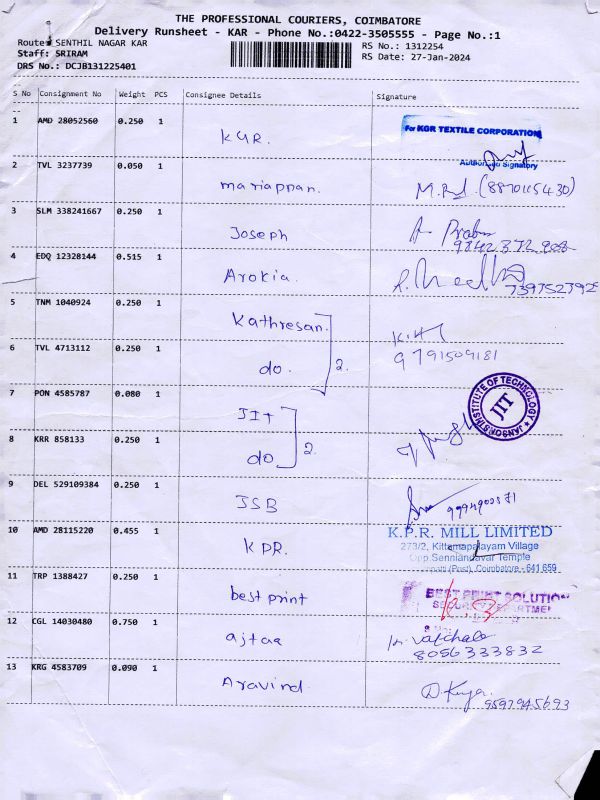 THE PROFESSIONAL COURIERS, COIMBATORE
Delivery Runsheet - KAR - Phone No.:0422-3505555 - Page No.:1
Route: SENTHIL NAGAR KAR
RS No.: 1312254
Staff: SRIRAM
RS Date: 27-Jan-2024
DRS No.: DCJB131225401
S No Consignment No Weight PCS Consignee Details Signature
1 AMD 28052560 0.250 1 KGR.
For KGR TEXTILE CORPORATION
Authorised Signatory
2 TVL 3237739 0.050 1 mariappan. (8870115430)
3 SLM 338241667 0.250 1 Joseph
4 EDQ 12328144 0.515 1 Arokia.
5 TNM 1040924 0.250 1 Kathresan.
6 TVL 4713112 0.250 1 do. 2. 9791509181
7 PON 4585787 0.080 1 JIT
JANSONS INSTITUTE OF TECHNOLOGY
JIT
8 KRR 858133 0.250 1 do 2.
9 DEL 529109384 0.250 1 JSB
10 AMD 28115220 0.455 1 KPR.
K.P.R. MILL LIMITED
273/2, Kittampalayam Village
Opp.Senniandavar Temple
(Post), Coimbatore - 641 659
11 TRP 1388427 0.250 1 best print
BEST PRINT SOLUTION
12 CGL 14030480 0.750 1 ajtaa
8056333832
13 KRG 4583709 0.090 1 Aravind.
9597945693